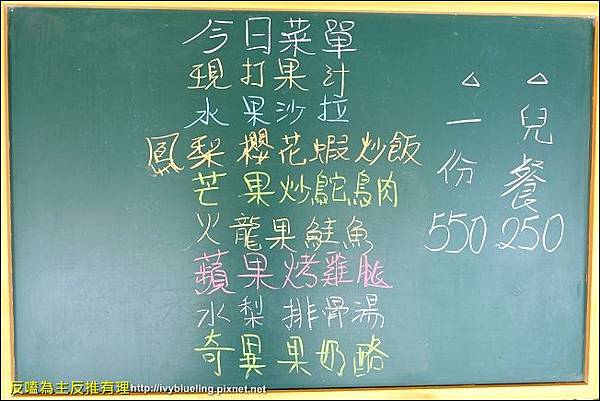 今日菜單
現打果汁
水果沙拉
鳳梨櫻花蝦炒飯
芒果炒鴕鳥肉
火龍果鮭魚
蘋果烤雞腿
水梨排骨湯
奇異果奶酪
△兒餐250
△一份550
反嗑為主反推有理http://ivyblueling.pixnet.net